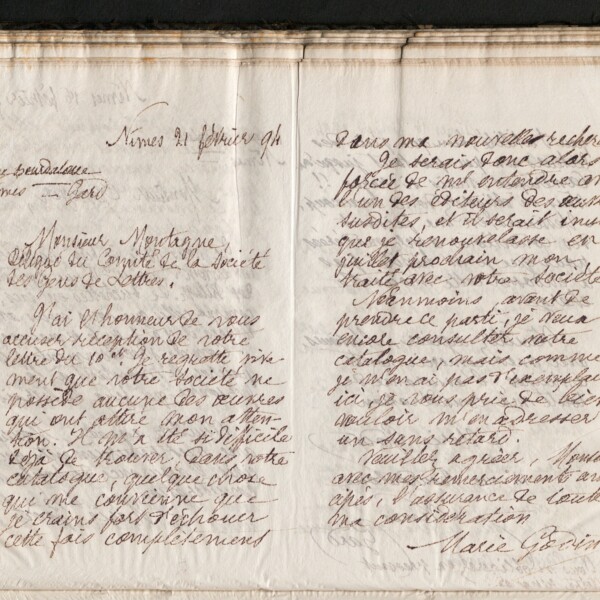 Nîmes 21 février 94
Bourdaloue
Gard
Monsieur Montagne,
Délégué du Comité de la Société
des Gens de Lettres.
J'ai l'honneur de vous
accuser réception de votre
lettre du 10 ct. Je regrette vive-
ment que votre Société ne
possède aucune des œuvres
qui ont attiré mon atten-
tion. Il m'a été si difficile
déjà de trouver dans votre
catalogue, quelque chose
qui me convienne que
je crains fort d'échouer
cette fois complètement
dans ma nouvelle
Je serais donc alors
forcée de m'entendre
l'un des éditeurs des
susdites, et il serait
que je renouvelasse en
juillet prochain mon
traité avec votre Société
Néanmoins, avant de
prendre ce parti, je veux
encore consulter votre
catalogue, mais comme
je n'en ai pas
ici, je vous prie de bien
vouloir m'en adresser
un sans retard.
Veuillez agréer,
avec mes remerciements
l'assurance de toute
ma considération
Marie